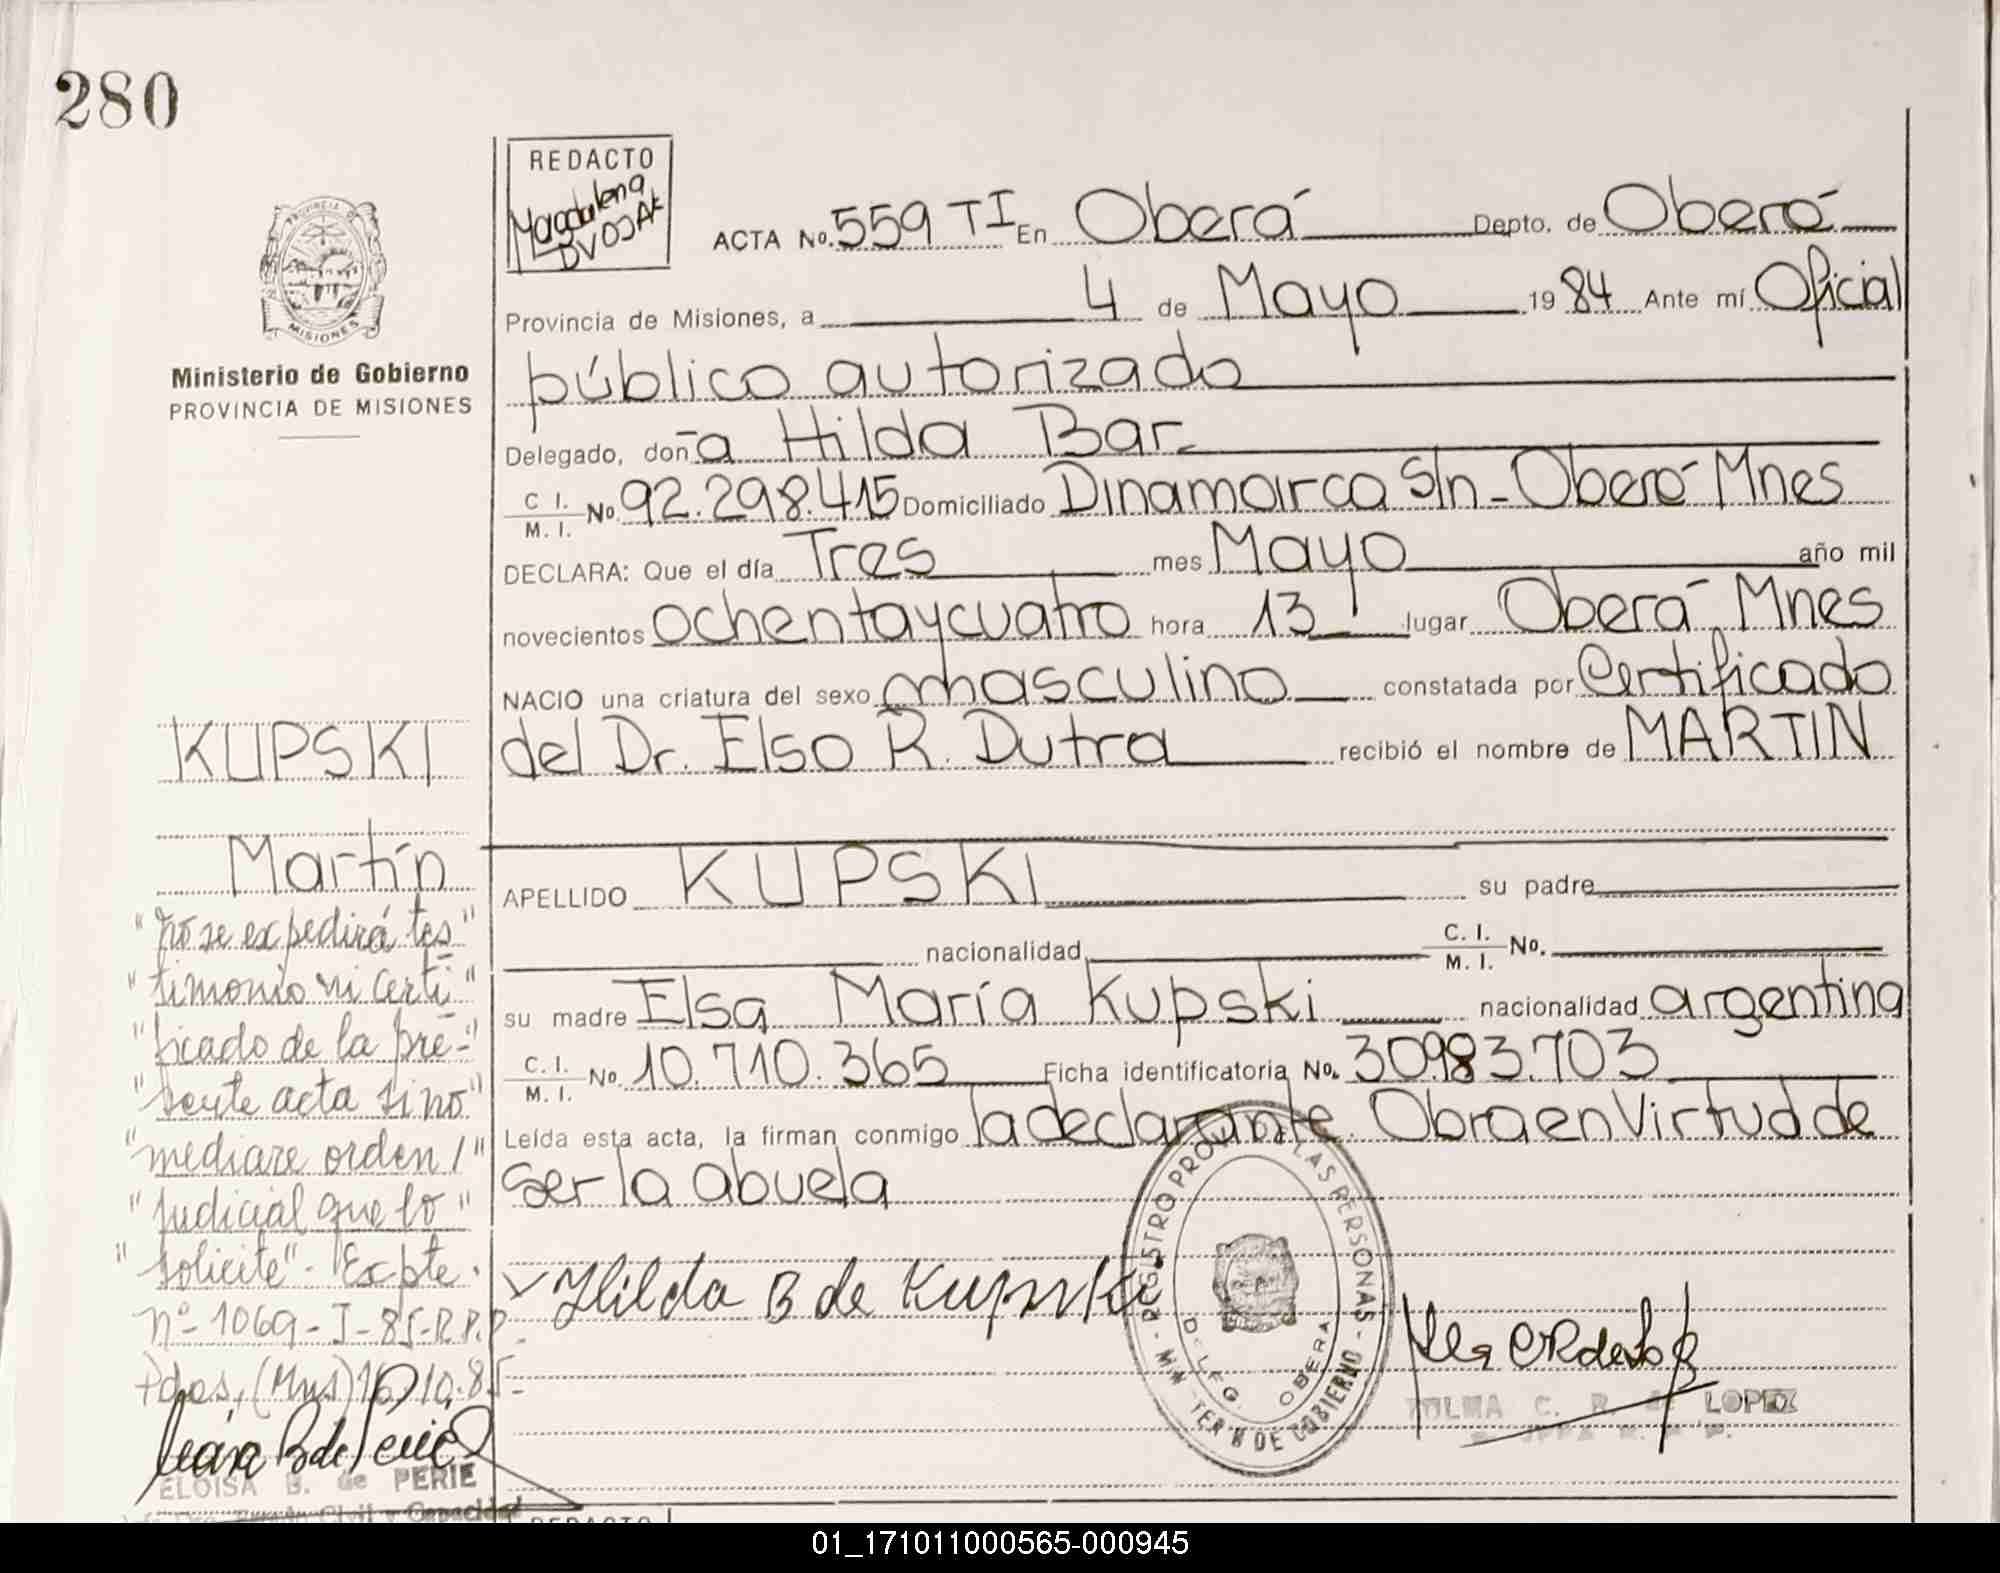 280
REDACTO
Magdalena
BVOJAK
ACTA No. 559 TI En Oberá Depto. de Oberá
Provincia de Misiones, a 4 de Mayo 1984 Ante mí Oficial
público autorizado
Delegado, doña Hilda Bar.
C. I.
M. I. No. 92.298.415 Domiciliado Dinamarca S/n - Oberá - Mnes
DECLARA: Que el día Tres mes Mayo año mil
novecientos ochentaycuatro hora 13 lugar Oberá, Mnes
NACIO una criatura del sexo masculino constatada por Certificado
del Dr. Elso R. Dutra recibió el nombre de MARTIN
APELLIDO KUPSKI su padre
nacionalidad C. I.
M. I. No.
su madre Elsa María Kupski nacionalidad argentina
C. I.
M. I. No. 10.710.365 Ficha identificatoria No. 30.983.703
Leída esta acta, la firman conmigo la declarante. Obra en Virtud de
ser la abuela
Hilda B de Kupski
REGISTRO PROV. LAS PERSONAS - MIN TERIO DE GOBIERNO -
DELEG. OBERA
C. R. de LOPEZ
PROVINCIA DE
MISIONES
Ministerio de Gobierno
PROVINCIA DE MISIONES
KUPSKI
Martín
"No se expedirá tes"
"timonio ni certi"
"ficado de la pre-"
"sente acta si no"
"mediare orden /"
"judicial que lo"
"solicite" - Expte.
nº 1069-I-85-R.P.P.
Pdas, (Mns) 16.10.85.-
ELOISA B. de PERIE
Civil y Capacidad
REDACTO
01_171011000565-000945